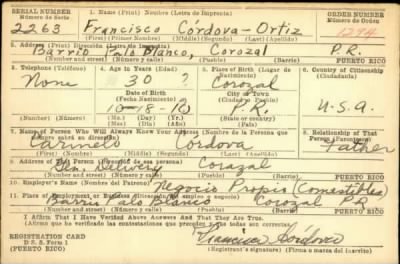 SERIAL NUMBER 1. Name (Print) Nombre (Letra de Imprenta) ORDER NUMBER
Número de Serie Número de Orden
2263 Francisco Córdova-Ortiz 1294
(First) (Primer Nombre) (Middle) (Segundo) (Last) (Apellido)
2. Address (Print) Dirección (Letra de Imprenta)
Barrio Palo Blanco, Corozal P.R.
(Number and street) (Número y calle) (Town) (Pueblo) PUERTO RICO
3. Telephone (Teléfono) 4. Age in Years (Edad) 5. Place of Birth (Lugar de Nacimiento) 6. Country of Citizenship
(Ciudadanía)
None 30 ? Corozal
Date of Birth City or Town
(Fecha Nacimiento) (Ciudad o Pueblo) U.S.A.
10-18-10 P.R.
(Number) (Número) (Mo.) (Day) (Yr.) State or country
(Mes) (Día) (Año) (Estado o país)
7. Name of Person Who Will Always Know Your Address (Nombre de la Persona que siempre sabrá su dirección) 8. Relationship of That Person (Parentesco)
Carmelo Córdova Father
(First) (Nombre) (Middle) (Segundo) (Last) (Apellido)
9. Address of This Person (Dirección de esa persona)
Gen. Delivery Corozal
(Number and street) (Número y calle) (Town) (Pueblo) PUERTO RICO
10. Employer's Name (Nombre del Patrono) Negocio Propio (Comestibles)
11. Place of Employment or Business (Dirección del empleo o negocio)
Barrio Palo Blanco Corozal P.R.
(Number and street) (Número y calle) (Town) (Pueblo) PUERTO RICO
I Affirm That I Have Verified Above Answers And That They Are True.
(Afirmo que he verificado las contestaciones que preceden y que todas son correctas)
REGISTRATION CARD
D. S. S. Form 1
(PUERTO RICO)
Francisco Córdova
Registrant's signature (Firma o marca del inscrito)